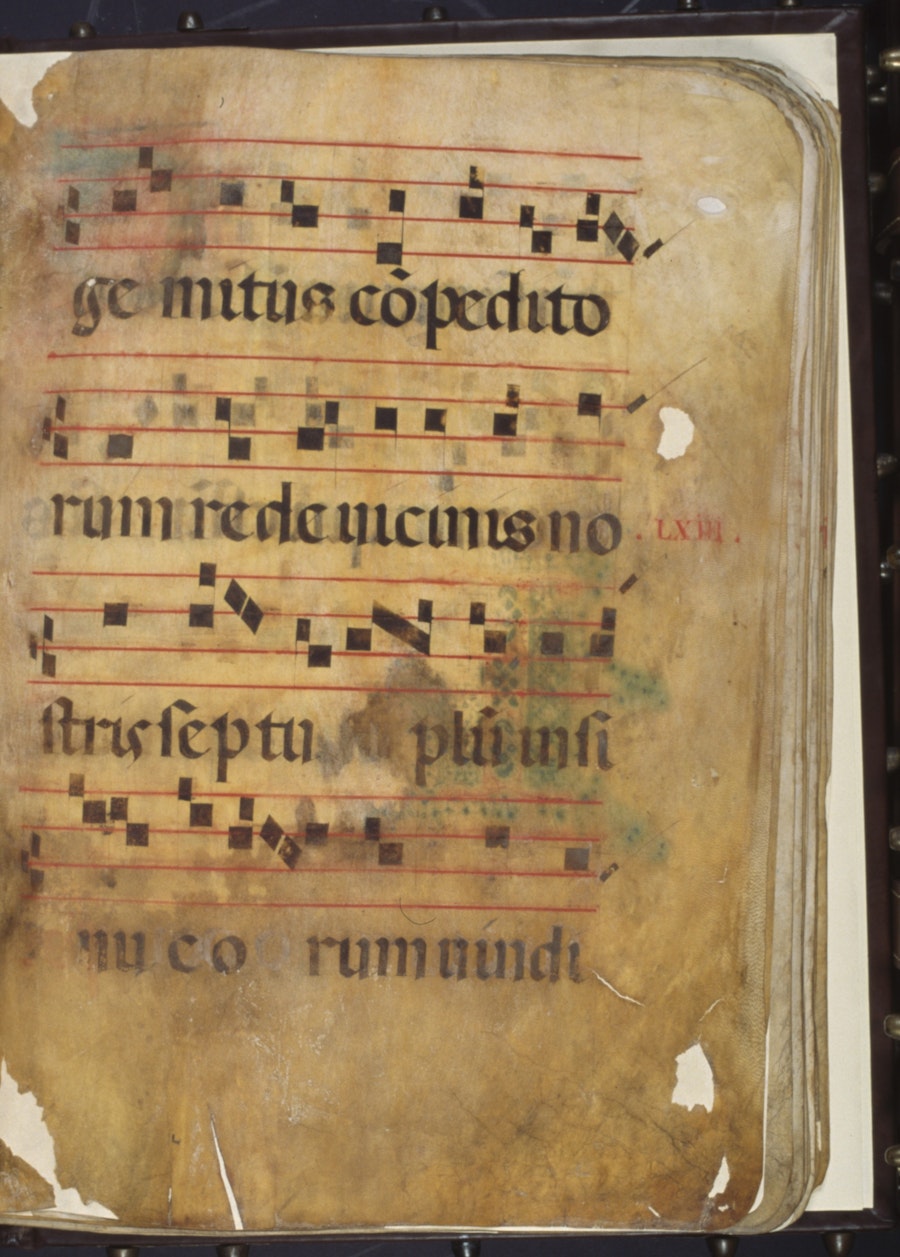 ge mitus cõpedito
rum redde uicinis no
. LXIII .
stris septu plũ in si
nu eo rum uindi